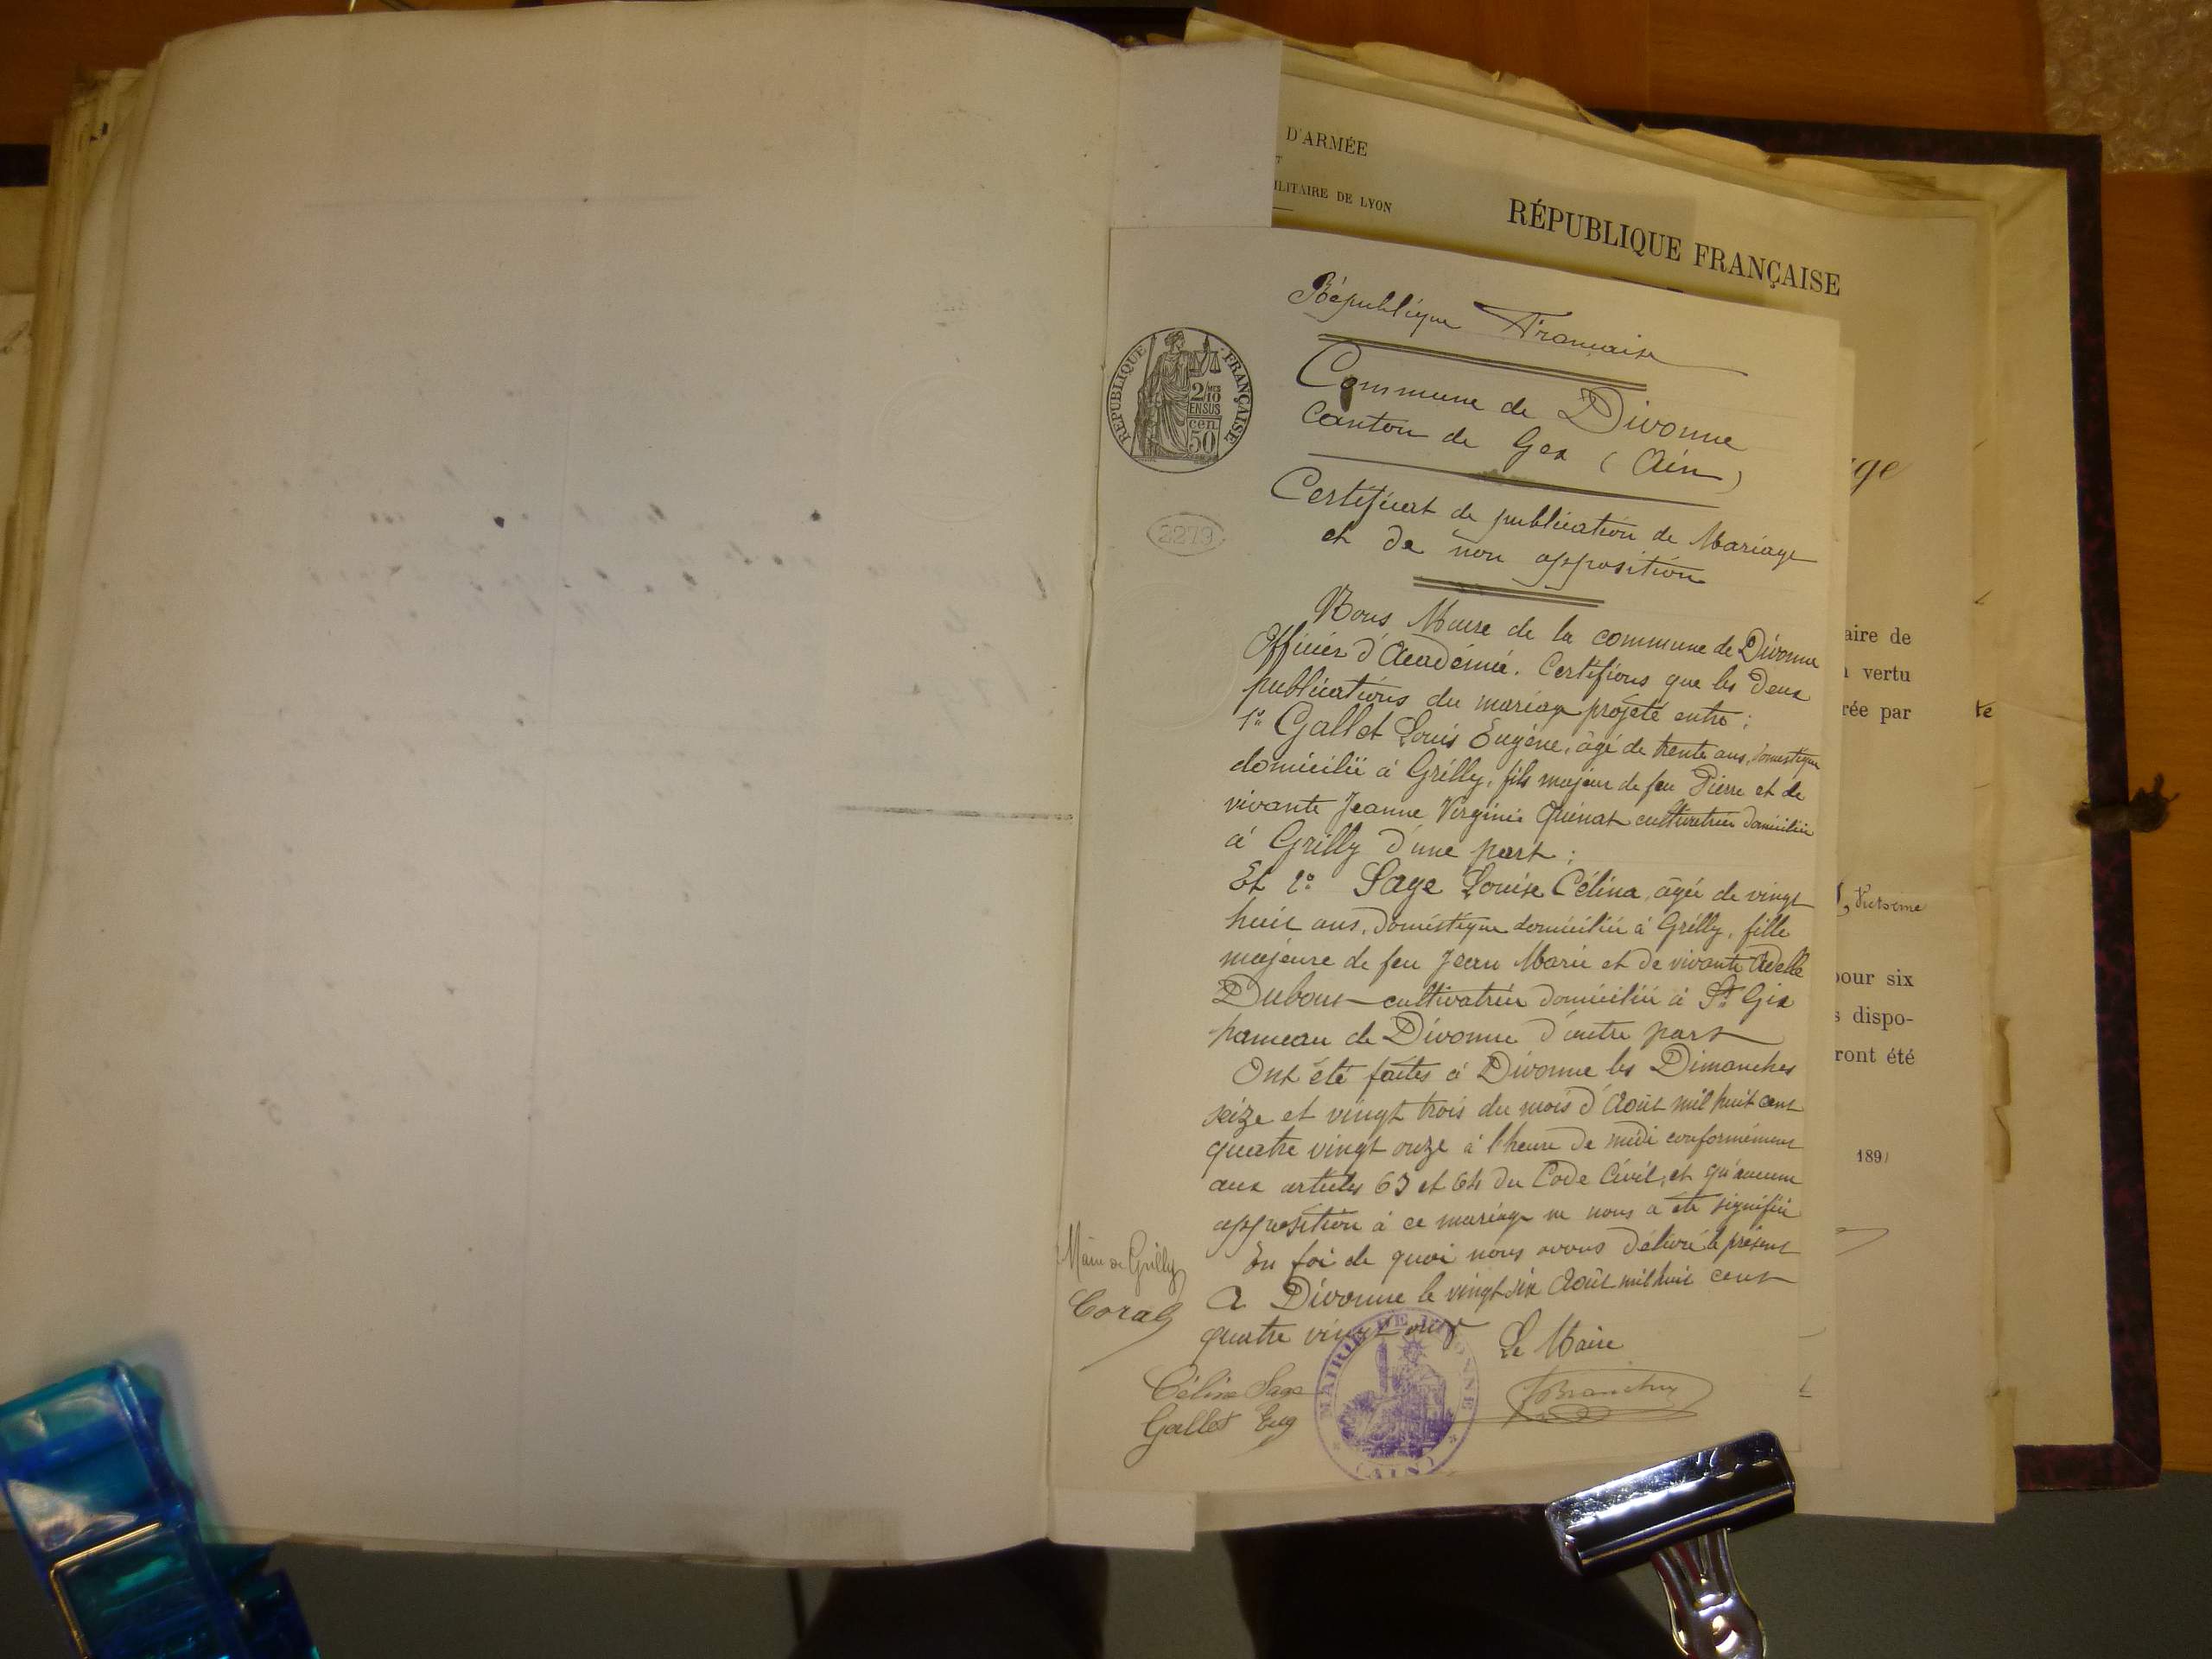 D'ARMÉE
ILITAIRE DE LYON
RÉPUBLIQUE FRANÇAISE
République Française
REPUBLIQUE FRANÇAISE
2/10
EN SUS
cen.
50
Commune de Divonne
Canton de Gex (Ain)
2279
Certificat de publication de Mariage
et de non opposition
Nous Maire de la commune de Divonne
Officier d'Académie. Certifions que les deux
publications du mariage projeté entre :
1° Gallet Louis Eugène, âgé de trente ans, domestique
domicilié à Grilly, fils majeur de feu Pierre et de
vivante Jeanne Virginie cultivatrice domiciliée
à Grilly d'une part ;
Et 2° Sage Louise Célina, âgée de vingt
huit ans, domestique domiciliée à Grilly, fille
majeure de feu Jean Marie et de vivante Adelle
Dubout cultivatrice domiciliée à St Gix
hameau de Divonne d'autre part
Ont été faites à Divonne les Dimanches
seize et vingt trois du mois d'Août mil huit cent
quatre vingt onze à l'heure de midi conformément
aux articles 63 et 64 du Code Civil, et qu'aucune
opposition à ce mariage ne nous a été signifiée
En foi de quoi nous avons délivré le présent
A Divonne le vingt six Août mil huit cent
quatre vingt onze
Le Maire
Maire de Grilly
Coral
Céline Sage
Gallet Eug
MAIRIE DE DIVONNE
(AIN)
ge
aire de
vertu
rée par
te
pour six
s dispo-
ront été
189